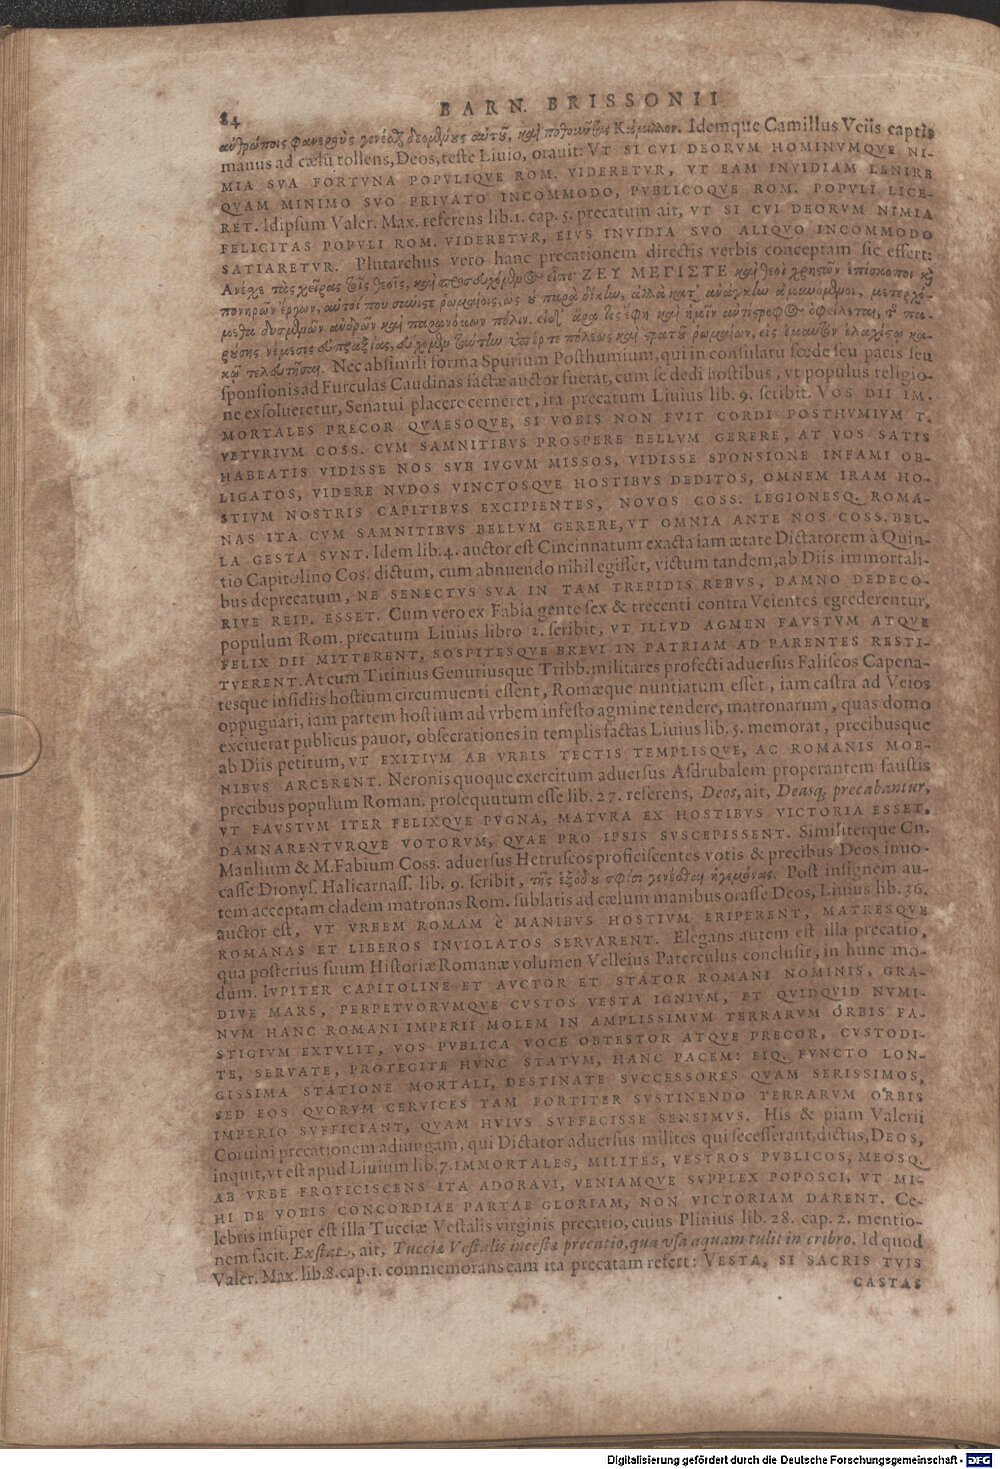 84 BARN. BRISSONII
Idemque Camillus Veiis captis
manus ad cælũ tollens, Deos, teste Liuio, orauit: VT SI CVI DEORVM HOMINVMQVE NI-
MIA SVA FORTVNA POPVLIQVE ROM. VIDERETVR, VT EAM INVIDIAM LENIRE
QVAM MINIMO SVO PRIVATO INCOMMODO, PVBLICOQVE ROM. POPVLI LICE-
RET. Idipsum Valer. Max. referens lib. 1. cap. 5. precatum ait, VT SI CVI DEORVM NIMIA
FELICITAS POPVLI ROM. VIDERETVR, EIVS INVIDIA SVO ALIQVO INCOMMODO
SATIARETVR. Plutarchus vero hanc precationem directis verbis conceptam sic effert:
ΖΕΥ ΜΕΓΙΣΤΕ καὶ θεοὶ χρηστῶν ἐπίσκοποι καὶ
πονηρῶν ἔργων, αὐτοί που
Nec absimili forma Spurium Posthumium, qui in consulatu fœde seu pacis seu
sponsionis ad Furculas Caudinas factæ auctor fuerat, cum se dedi hostibus, vt populus religio-
ne exsolueretur, Senatui placere cerneret, ita precatum Liuius lib. 9. scribit. VOS DII IM-
MORTALES PRECOR QVAESOQVE, SI VOBIS NON FVIT CORDI POSTHVMIVM T.
VETVRIVM COSS. CVM SAMNITIBVS PROSPERE BELLVM GERERE, AT VOS SATIS
HABEATIS VIDISSE NOS SVB IVGVM MISSOS, VIDISSE SPONSIONE INFAMI OB-
LIGATOS, VIDERE NVDOS VINCTOSQVE HOSTIBVS DEDITOS, OMNEM IRAM HO-
STIVM NOSTRIS CAPITIBVS EXCIPIENTES, NOVOS COSS. LEGIONESQ. ROMA-
NAS ITA CVM SAMNITIBVS BELLVM GERERE, VT OMNIA ANTE NOS COSS. BEL-
LA GESTA SVNT. Idem lib. 4. auctor est Cincinnatum exacta iam ætate Dictatorem à Quin-
tio Capitolino Cos. dictum, cum abnuendo nihil egisset, victum tandem, ab Diis immortali-
bus deprecatum, NE SENECTVS SVA IN TAM TREPIDIS REBVS, DAMNO DEDECO-
RIVE REIP. ESSET. Cum vero ex Fabia gente sex & trecenti contra Veientes egrederentur,
populum Rom. precatum Liuius libro 2. scribit, VT ILLVD AGMEN FAVSTVM ATQVE
FELIX DII MITTERENT, SOSPITESQVE BREVI IN PATRIAM AD PARENTES RESTI-
TVERENT. At cum Titinius Genutiusque Tribb. militares profecti aduersus Faliscos Capena-
tesque insidiis hostium circumuenti essent, Romæque nuntiatum esset, iam castra ad Veios
oppugnari, iam partem hostium ad vrbem infesto agmine tendere, matronarum, quas domo
exciuerat publicus pauor, obsecrationes in templis factas Liuius lib. 5. memorat, precibusque
ab Diis petitum, VT EXITIVM AB VRBIS TECTIS TEMPLISQVE, AC ROMANIS MOE-
NIBVS ARCERENT. Neronis quoque exercitum aduersus Asdrubalem properantem faustis
precibus populum Roman. prosequutum esse lib. 27. referens, Deos, ait, Deasq; precabantur,
VT FAVSTVM ITER FELIXQVE PVGNA, MATVRA EX HOSTIBVS VICTORIA ESSET,
DAMNARENTVRQVE VOTORVM, QVAE PRO IPSIS SVSCEPISSENT. Similiterque Cn.
Manlium & M. Fabium Coss. aduersus Hetruscos proficiscentes votis & precibus Deos inuo-
casse Dionys. Halicarnass. lib. 9. scribit, τῆς ἐξόδου σφίσι γενέσθαι ἡγεμόνας. Post insignem au-
tem acceptam cladem matronas Rom. sublatis ad cælum manibus orasse Deos, Liuius lib. 26.
auctor est, VT VRBEM ROMAM è MANIBVS HOSTIVM ERIPERENT, MATRESQVE
ROMANAS ET LIBEROS INVIOLATOS SERVARENT. Elegans autem est illa precatio,
qua posterius suum Historiæ Romanæ volumen Velleius Paterculus conclusit, in hunc mo-
dum. IVPITER CAPITOLINE ET AVCTOR ET STATOR ROMANI NOMINIS, GRA-
DIVE MARS, PERPETVORVMQVE CVSTOS VESTA IGNIVM, ET QVIDQVID NVMI-
NVM HANC ROMANI IMPERII MOLEM IN AMPLISSIMVM TERRARVM ORBIS FA-
STIGIVM EXTVLIT, VOS PVBLICA VOCE OBTESTOR ATQVE PRECOR, CVSTODI-
TE, SERVATE, PROTEGITE HVNC STATVM, HANC PACEM: EIQ. FVNCTO LON-
GISSIMA STATIONE MORTALI, DESTINATE SVCCESSORES QVAM SERISSIMOS,
SED EOS QVORVM CERVICES TAM FORTITER SVSTINENDO TERRARVM ORBIS
IMPERIO SVFFICIANT, QVAM HVIVS SVFFECISSE SENSIMVS. His & piam Valerii
Coruini precationem adiungam, qui Dictator aduersus milites qui secesserant, dictus, DEOS,
inquit, vt est apud Liuium lib. 7. IMMORTALES, MILITES, VESTROS PVBLICOS, MEOSQ.
AB VRBE PROFICISCENS ITA ADORAVI, VENIAMQVE SVPPLEX POPOSCI, VT MI-
HI DE VOBIS CONCORDIAE PARTAE GLORIAM, NON VICTORIAM DARENT. Ce-
lebris insuper est illa Tucciæ Vestalis virginis precatio, cuius Plinius lib. 28. cap. 2. mentio-
nem facit. Exstat, ait, Tucciæ Vestalis incestæ precatio, qua vsa aquam tulit in cribro. Id quod
Valer. Max. lib. 8. cap. 1. commemorans eam ita precatam refert: VESTA, SI SACRIS TVIS
CASTAS
Digitalisierung gefördert durch die Deutsche Forschungsgemeinschaft - DFG